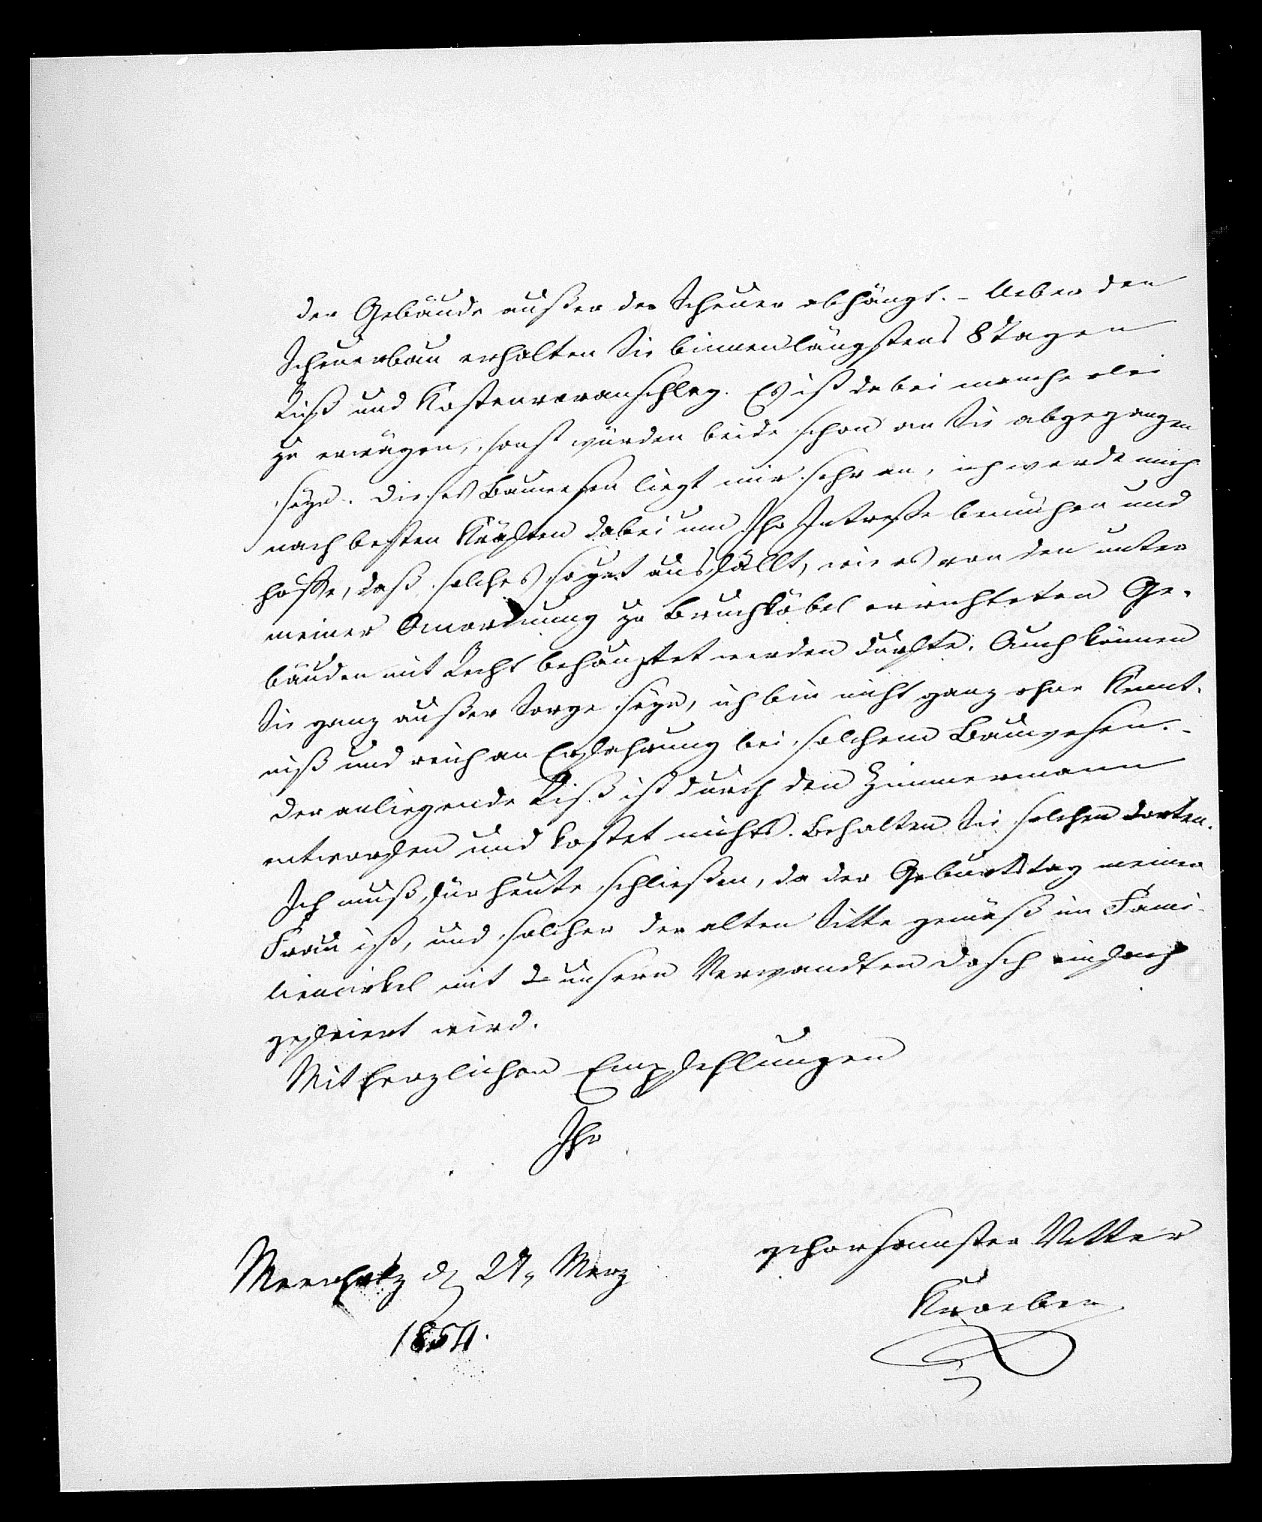 der Gebäude außer der Scheuer abhängt. – Ueber den
Scheuerbau erhalten Sie binnen längstens 8 Tagen
Riß und Kostenvoranschlag. Es ist dabei mancherlei
zu erwägen, sonst würden beide schon an Sie abgegangen
seyn. Dieses Bauwesen liegt mir sehr an, ich werde mich
nach besten Kräften dabei um Ihr Intresse bemühen und
hoffe, daß solches so gut ausfällt, wie es von den unter
meiner Anordnung zu Bruchköbel errichteten Ge-
bäuden mit Recht behauptet werden durfte. Auch können
Sie ganz außer Sorge seyn, ich bin nicht ganz ohne Kennt-
niß und reich an Erfahrung bei solchem Bauwesen. –
Der anliegende Riß ist durch den Zimmermann
entworfen und kostet nichts. Behalten Sie solchen dorten.
Ich muß für heute schließen, da der Geburtstag meiner
Frau ist, und solcher der alten Sitte gemäß im Fami-
liencirkel mit unsern Verwandten Dosch einfach
gefeiert wird.
Mit herzlichen Empfehlungen
Ihr
gehorsamster Vetter
Kroeber
Meerholz d 27, Merz
1854.